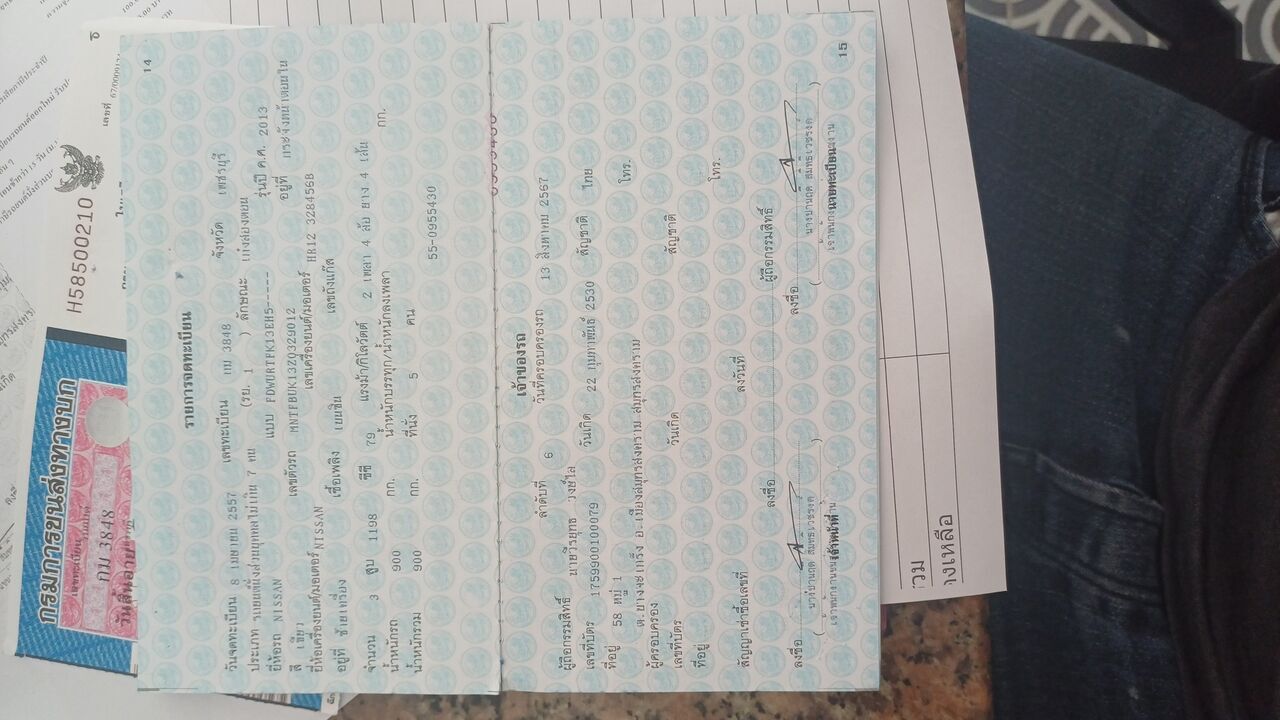 14
รายการจดทะเบียน
วันจดทะเบียน 8 เมษายน 2557 เลขทะเบียน กม 3848 จังหวัด เพชรบุรี
ประเภท รถยนต์นั่งส่วนบุคคลไม่เกิน 7 คน (รย. 1 ) ลักษณะ เก๋งสองตอน
ยี่ห้อรถ NISSAN แบบ FDWURTFK13EH5----- รุ่นปี ค.ศ. 2013
สี เขียว เลขตัวรถ MNTFBUK13Z0329012 อยู่ที่ กระจังหน้าตอนใน
ยี่ห้อเครื่องยนต์/มอเตอร์ NISSAN เลขเครื่องยนต์/มอเตอร์ HR12 328456B
อยู่ที่ ซ้ายเครื่อง เชื้อเพลิง เบนซิน เลขถังแก๊ส
จำนวน 3 สูบ 1198 ซีซี 79 แรงม้า/กิโลวัตต์ 2 เพลา 4 ล้อ ยาง 4 เส้น
น้ำหนักรถ 900 กก. น้ำหนักบรรทุก/น้ำหนักลงเพลา กก.
น้ำหนักรวม 900 กก. ที่นั่ง 5 คน
55-0955430
เจ้าของรถ
ลำดับที่ 6 วันที่ครอบครองรถ 13 สิงหาคม 2567
ผู้ถือกรรมสิทธิ์ นายวีรยุทธ วงษ์ใส
เลขที่บัตร 1759900100079 วันเกิด 22 กุมภาพันธ์ 2530 สัญชาติ ไทย
ที่อยู่ 58 หมู่ 1 โทร.
ต.บางจะเกร็ง อ.เมืองสมุทรสงคราม สมุทรสงคราม
ผู้ครอบครอง
เลขที่บัตร วันเกิด สัญชาติ
ที่อยู่ โทร.
สัญญาเช่าซื้อเลขที่ ลงวันที่
ลงชื่อ ผู้ถือกรรมสิทธิ์
ลงชื่อ ลงชื่อ
เจ้าหน้าที่ นายทะเบียน
15
กรมการขนส่งทางบก
เลขทะเบียน
กม 3848
วันสิ้นอายุ
H58500210
เลขที่